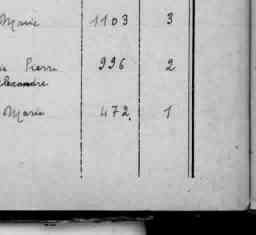 Marie 1103 3
Pierre 996 2
Alexandre
Marie 472. 1